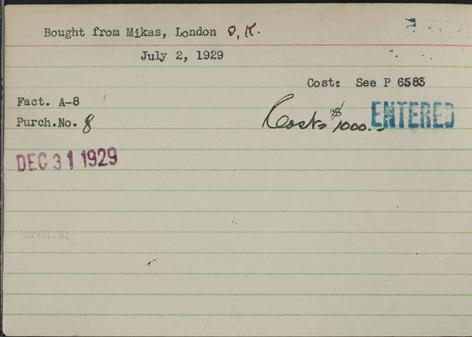 Bought from Mikas, London O.K.
July 2, 1929
Cost: See P 6583
Fact. A-8
Purch.No. 8
Cost $1000.-
ENTERED
DEC 31 1929